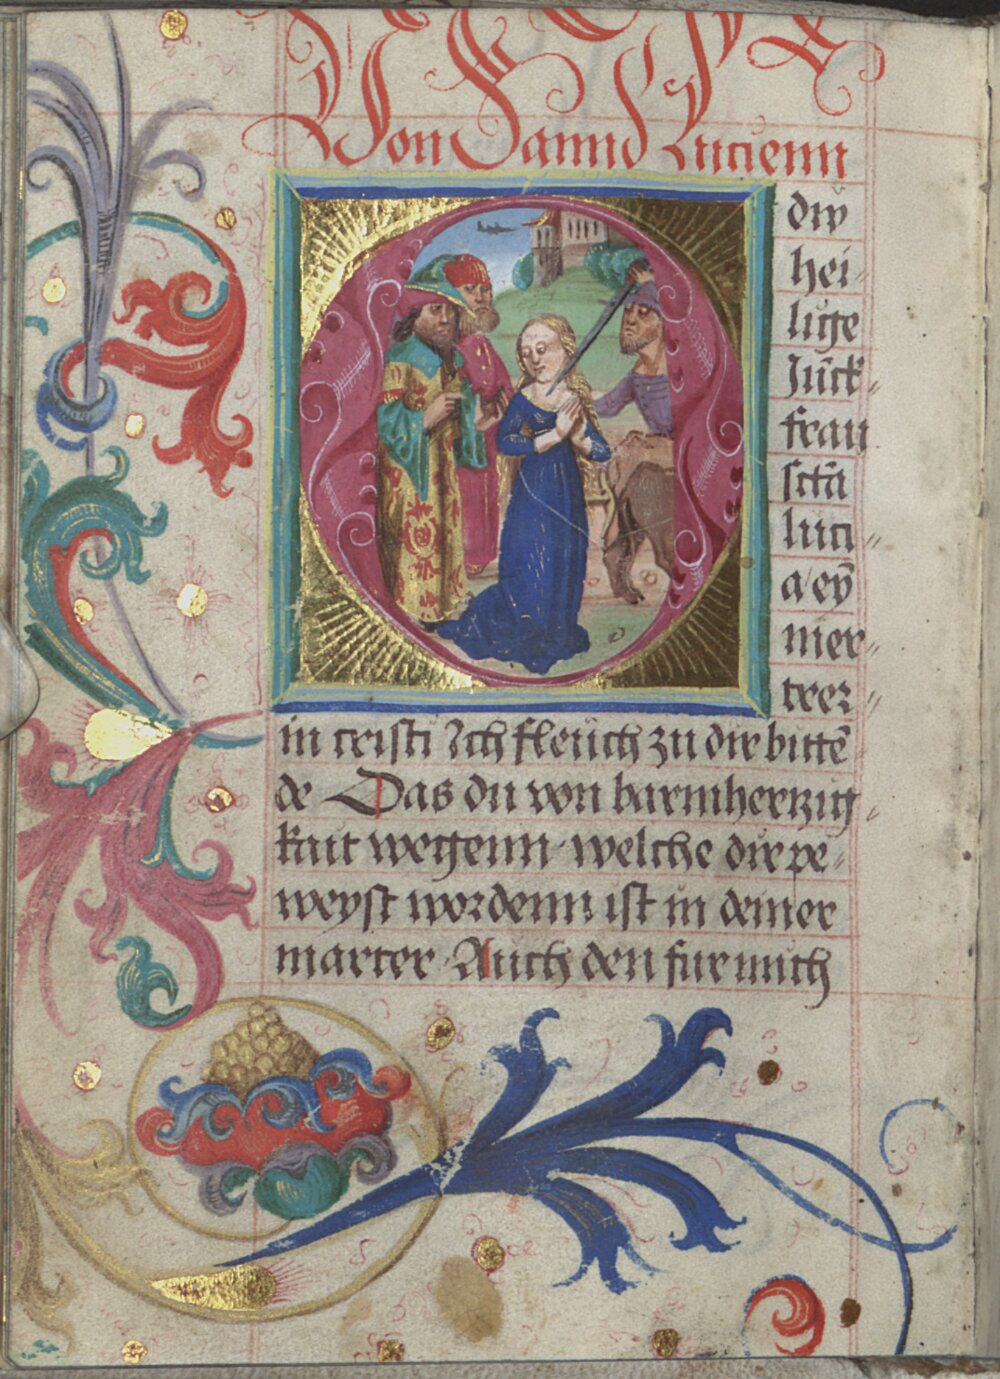 Von Sannd Lucienn
O dw
hei-
lige
Jūck-
frau
sctā
luci-
a ey̅
mer-
trer-
in cristi Ich fleüch zu dir bittē
de Das du von barmherzig-
kait wegenn welche dir pe-
weyst wordenn ist in deiner
marter Auch den fur mich